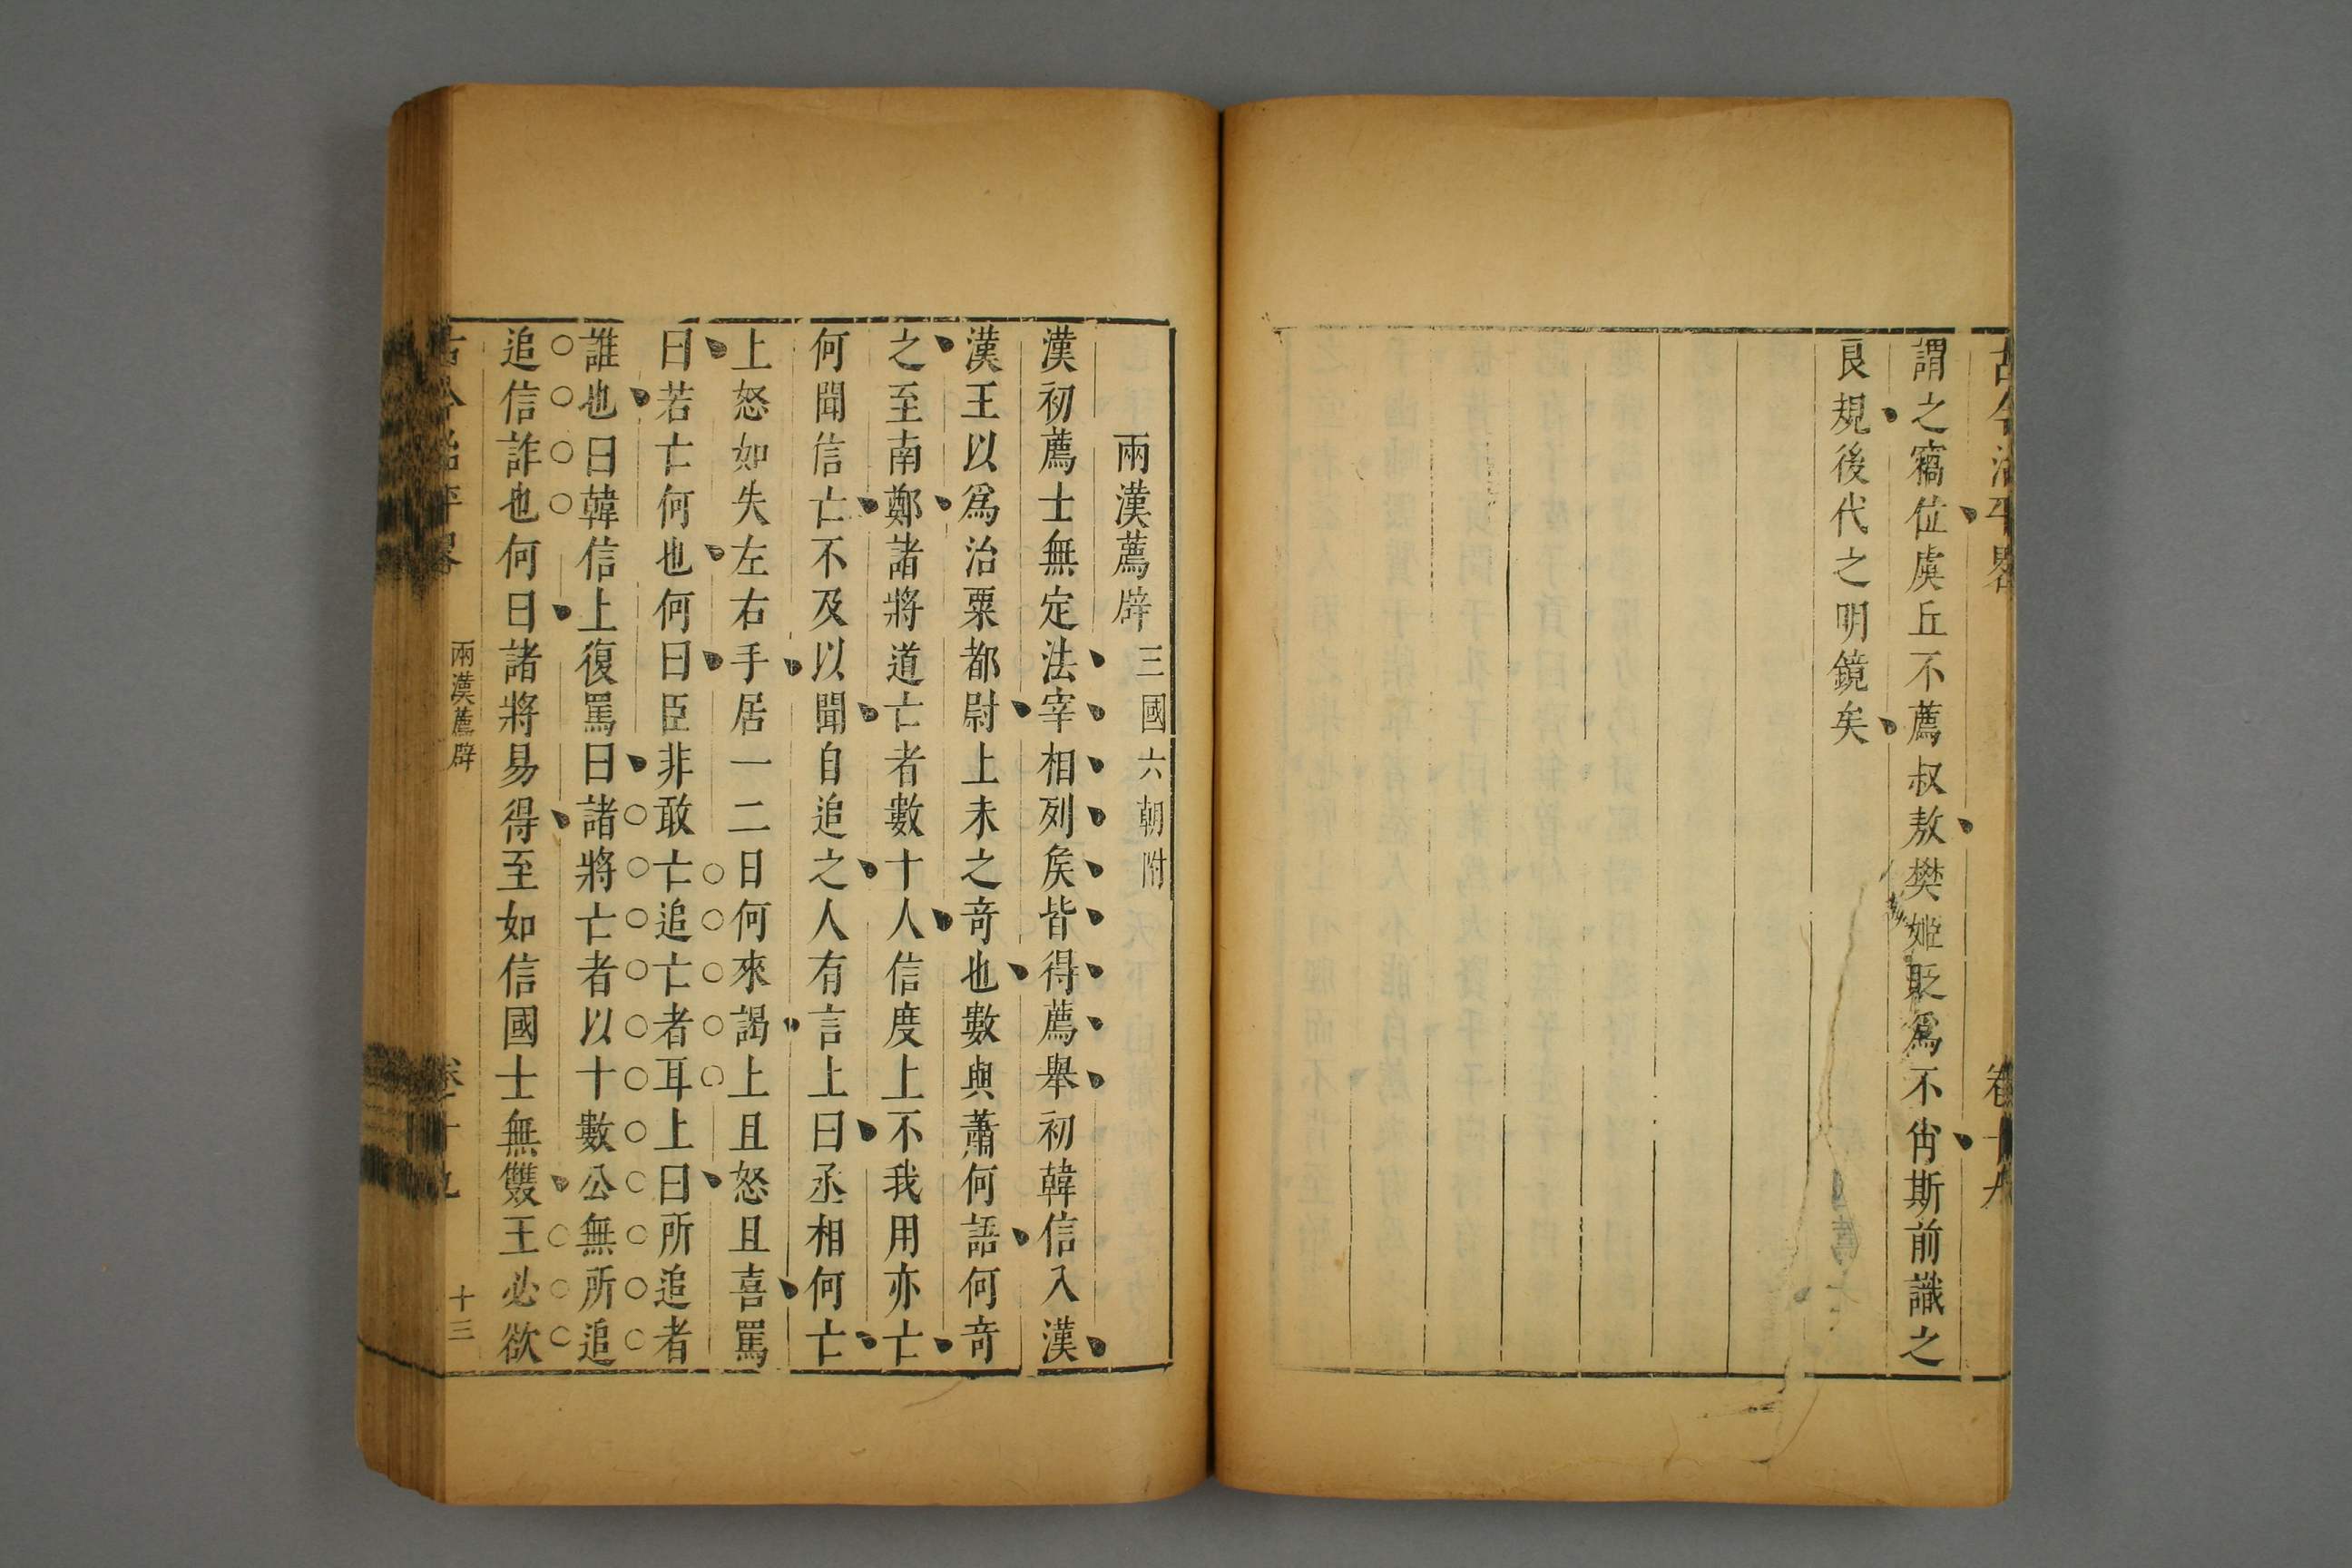 古今治平畧 卷十九
謂之竊位虞丘不薦叔敖樊姬貶爲不肖斯前識之
良規後代之明鏡矣
兩漢薦辟 三國六朝附
漢初薦士無定法宰相列矦皆得薦舉初韓信入漢
漢王以爲治粟都尉上未之奇也數與蕭何語何奇
之至南鄭諸將道亡者數十人信度上不我用亦亡
何聞信亡不及以聞自追之人有言上曰丞相何亡
上怒如失左右手居一二日何來謁上且怒且喜罵
曰若亡何也何曰臣非敢亡追亡者耳上曰所追者
誰也曰韓信上復罵曰諸將亡者以十數公無所追
追信詐也何曰諸將易得至如信國士無雙王必欲
古今治平畧 兩漢薦辟 卷十九 十三